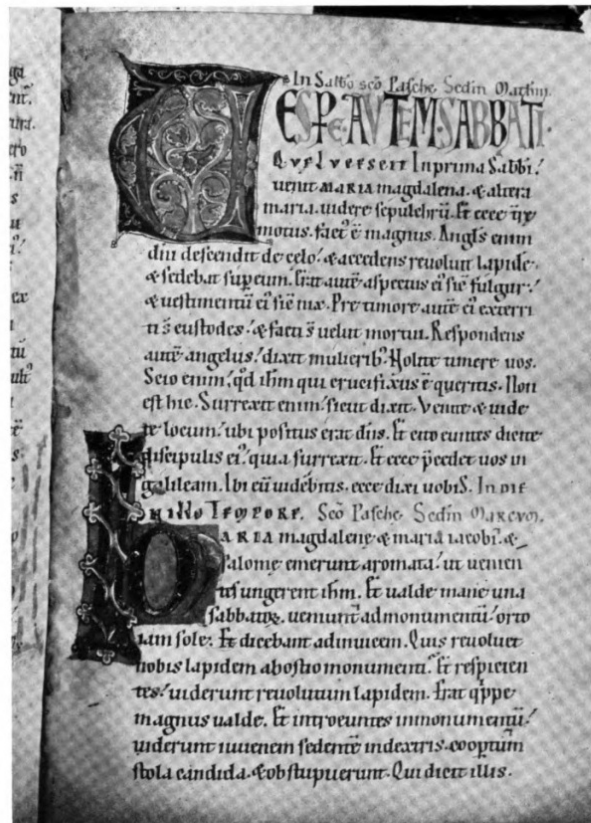 In Sabbo scō Pasche. Sedīn Mathm.
ESPE. AVTEM. SABBATI.
QVE LVCESCIT In prima Sabbī.
uenit MARIA magdalena. & altera
maria. uidere sepulchrū. Et ecce t̄re
motus. fact' ē magnus. Angl's enim
dn̄i descendit de celo. & accedens reuoluit lapidē.
& sedebat sup eum. Erat autē aspectus ei' sic̄ fulgur.
& uestimentū ei' sic̄ nix. Pre timore autē ei' exterri
ti s̄ custodes. & facti s̄ uelut mortui. Respondens
autē angelus. dixit mulierib'. Nolite timere uos.
Scio enim. qd ihm̄ qui crucifixus ē queritis. Non
est hic. Surrexit enim. sicut dixit. Venite & uide
te locum. ubi positus erat dn̄s. Et cito euntes dicite
discipulis ei'. quia surrexit. Et ecce p̄cedet uos in
galileam. Ibi eū uidebitis. ecce dixi uobis. In DIE
N ILLO TEMPORE. Scō Pasche. Sedīn Marcum.
ARIA magdalene & maria iacobi. &
salome emerunt aromata. ut uenien
tes ungerent ihm̄. Et ualde mane una
sabbatoꝝ. ueniunt ad monumentū. orto
iam sole. Et dicebant adinuicem. Quis reuoluet
nobis lapidem abostio monumenti. Et respicien
tes. uiderunt reuolutum lapidem. Erat q'ppe
magnus ualde. Et introeuntes inmonumentū.
uiderunt iuuenem sedentē indextris. coop̄tum
stola candida. & obstupuerunt. Qui dicit illis.